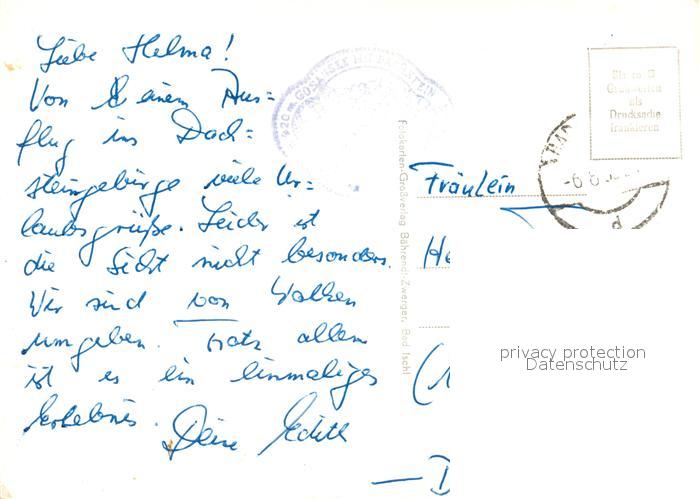 Liebe Helma!
Von einem Aus=
flug ins Dach=
steingebirge viele Ur=
laubsgrüße. Leider ist
die Sicht nicht besonders.
Wir sind von Wolken
umgeben. Trotz allem
ist es ein einmaliges
Erlebnis.
Deine Edith
920 m GOSAUSEE MIT DACHSTEIN
Fotokarten-Großverlag Bährendt-Zwerger, Bad Ischl
Bis zu 5
Grußworten
als
Drucksache
frankieren
Fräulein
He
privacy protection
Datenschutz